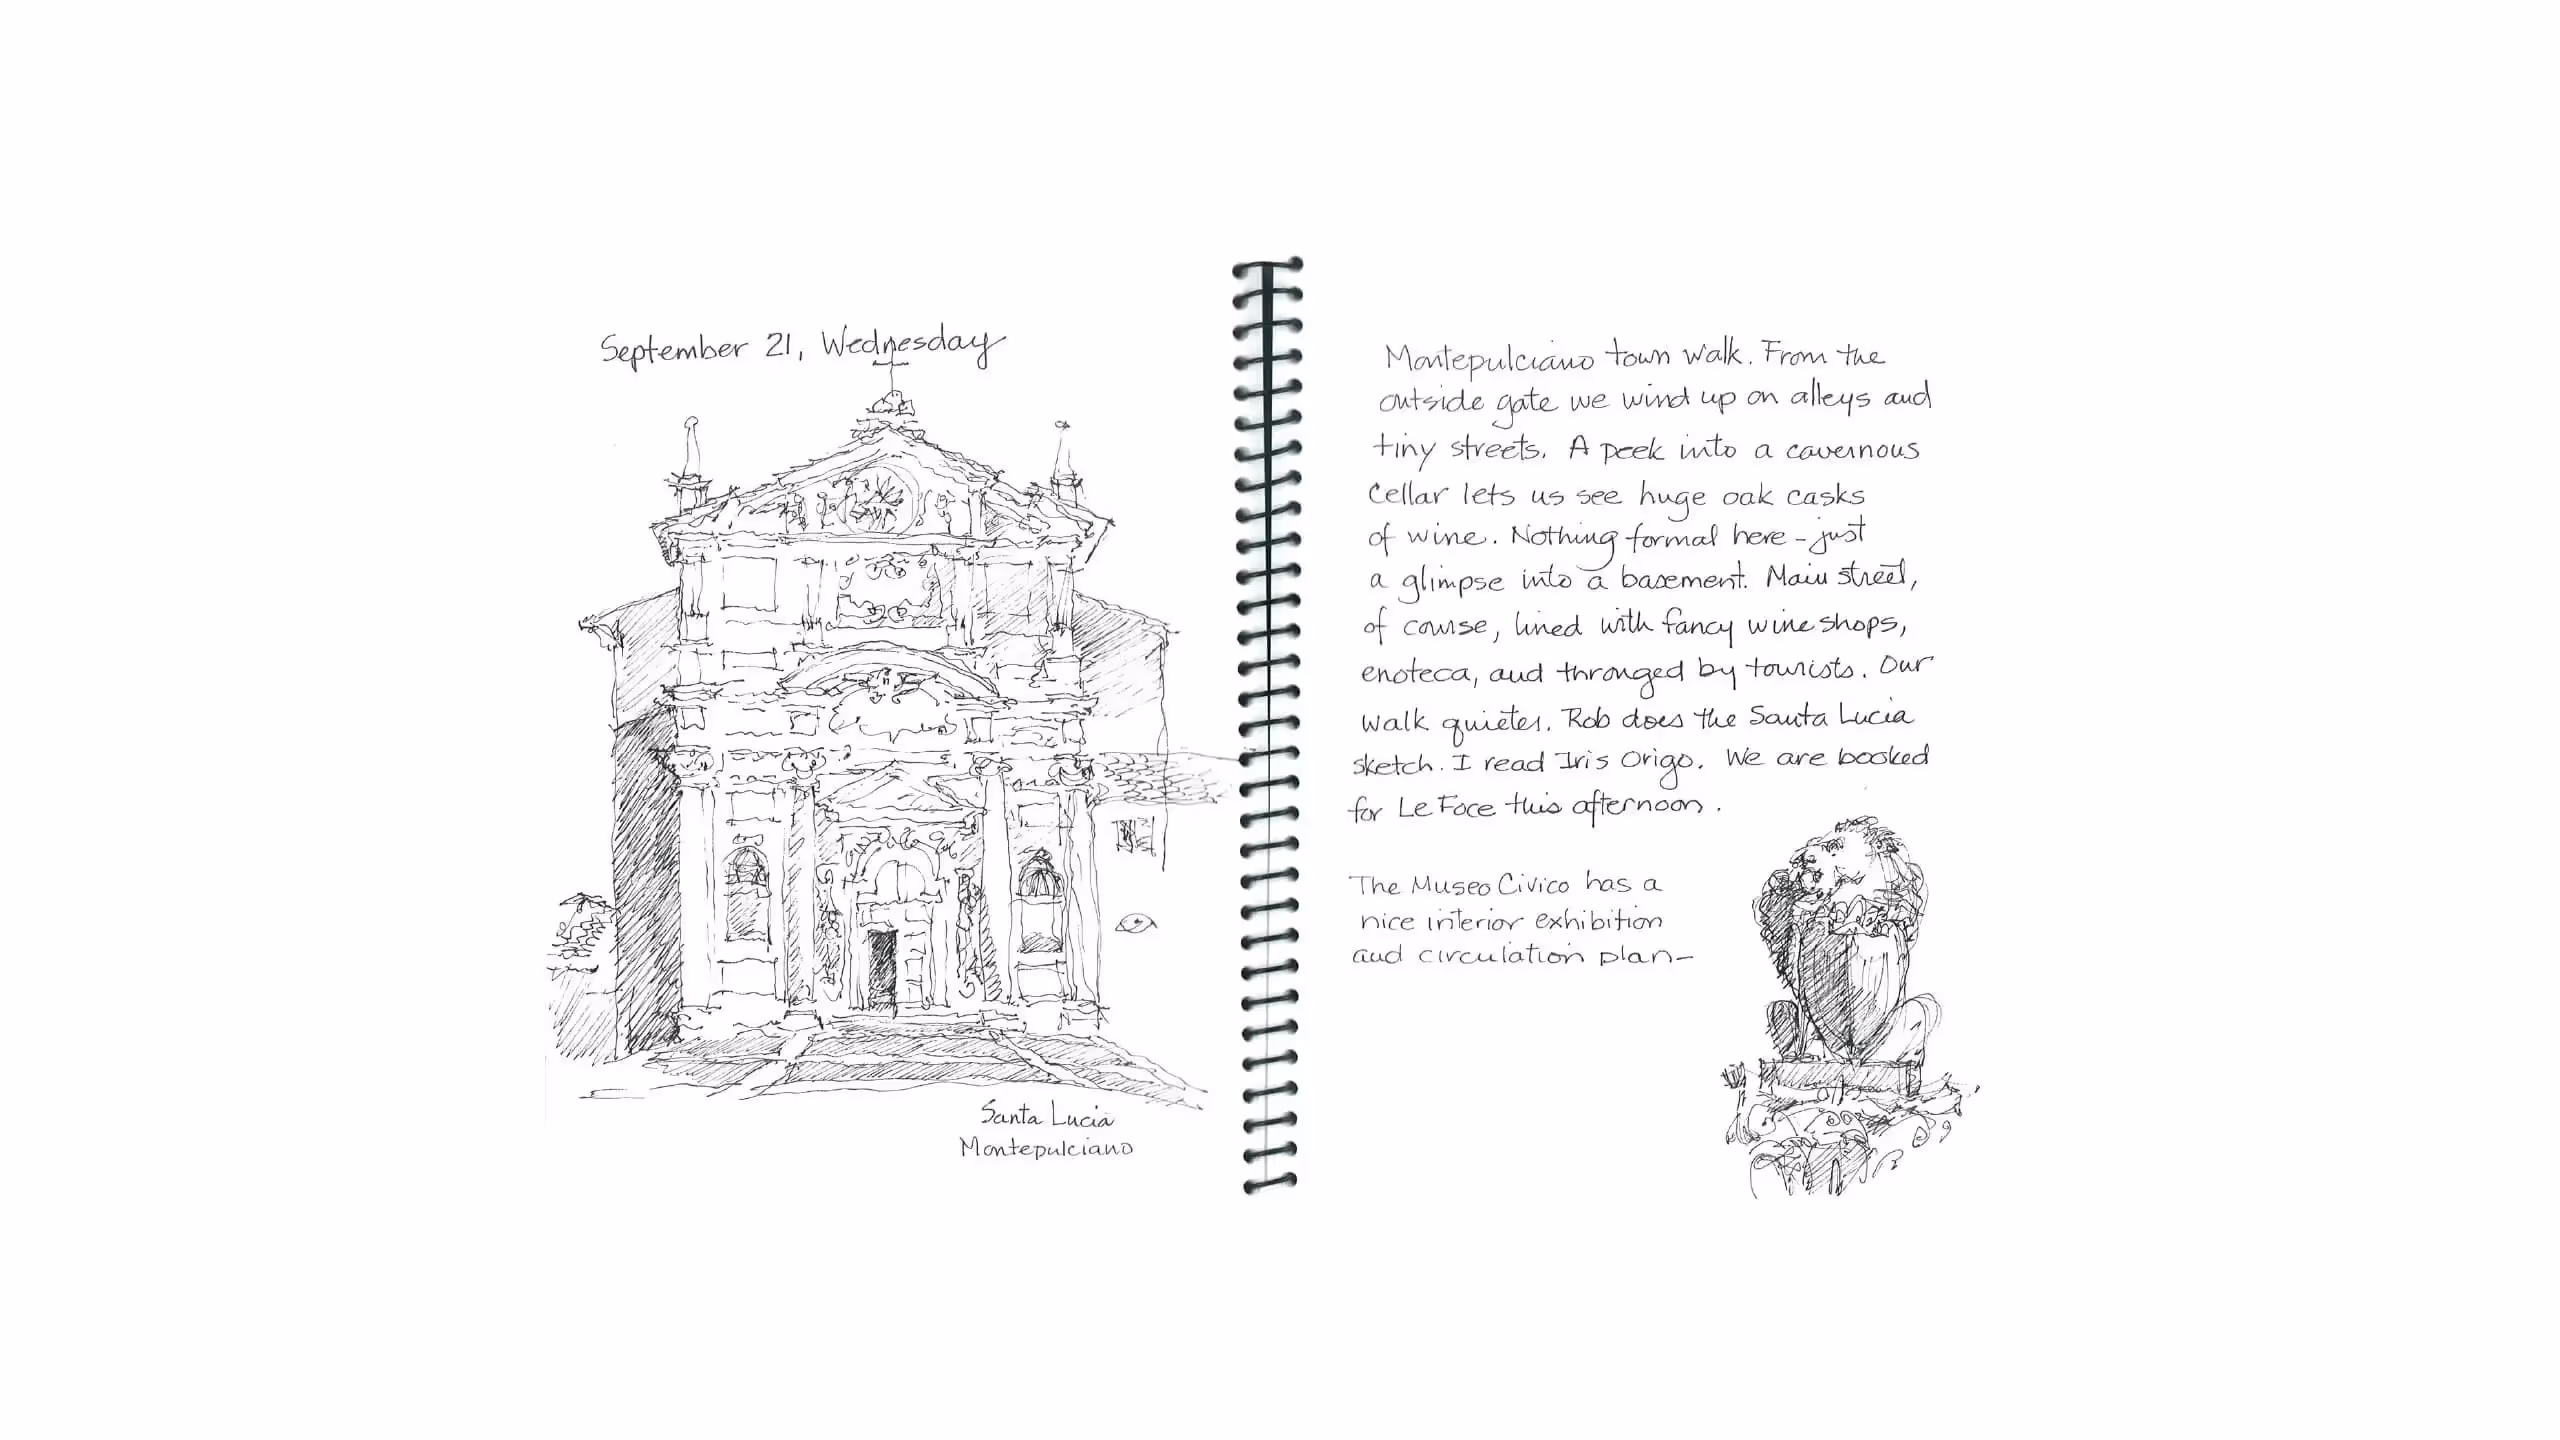 September 21, Wednesday
Santa Lucia
Montepulciano
Montepulciano town walk. From the
outside gate we wind up on alleys and
tiny streets. A peek into a cavernous
Cellar lets us see huge oak casks
of wine. Nothing formal here - just
a glimpse into a basement. Main street,
of course, lined with fancy wine shops,
enoteca, and thronged by tourists. Our
walk quieter. Rob does the Santa Lucia
sketch. I read Iris Origo. We are booked
for Le Foce this afternoon.
The Museo Civico has a
nice interior exhibition
and circulation plan-